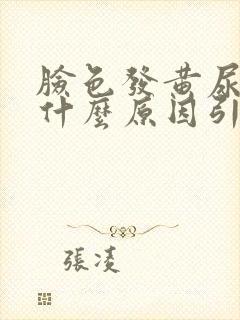 臉色發黃尿
什麼原因引
張凌